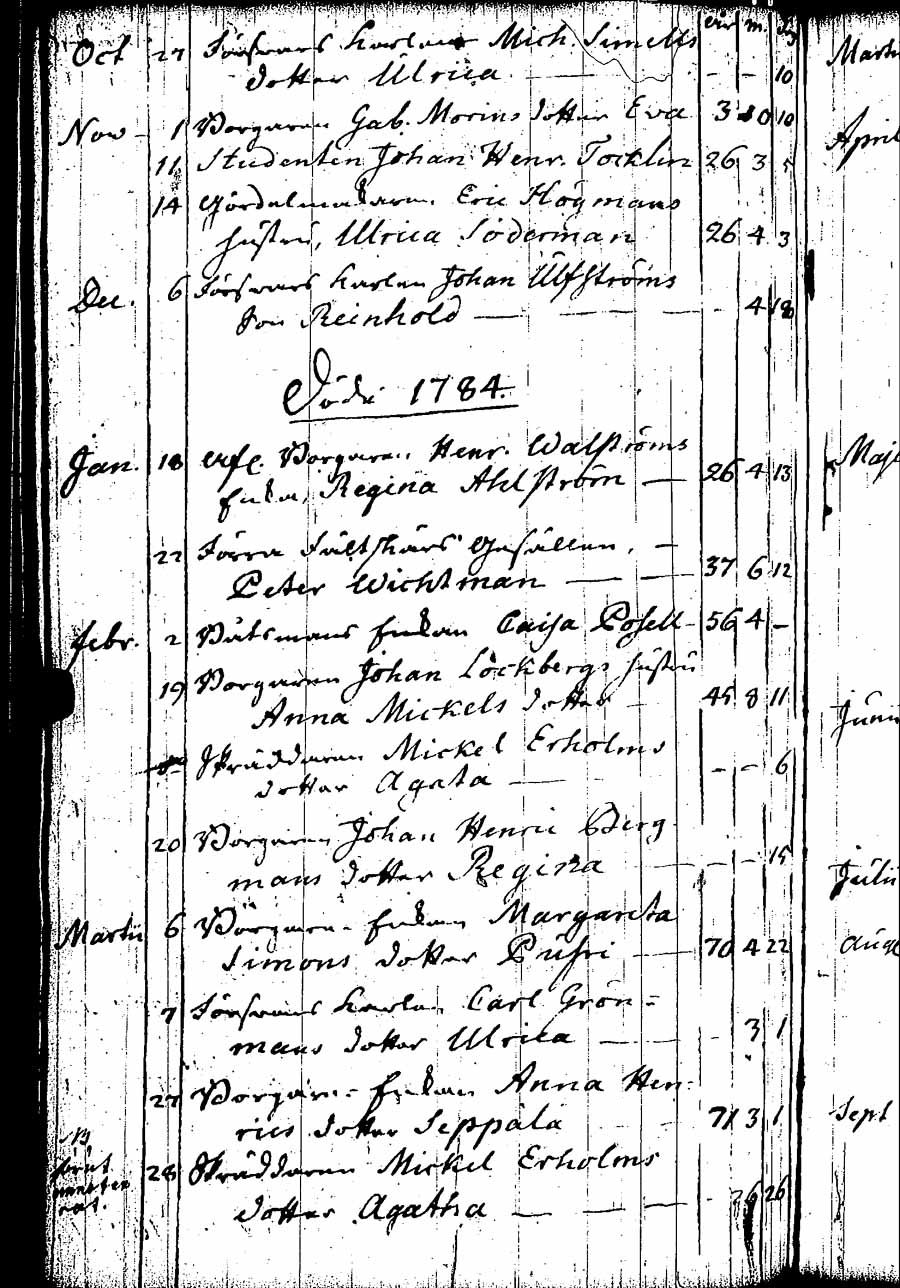 år m. dg
Oct 27 Försvars Karlens Mich. Simells
dotter Ulrica — - - 10
Nov - 1 Borgaren Gab. Morins dotter Eva 3 10 10
11 Studenten Johan Henr. Tocklin 26 3 5
14 Gördelmakaren Eric Högmans
hustru, Ulrica Söderman 26 4 3
Dec. 6 Försvars Karlen Johan Ulfströms
Son Reinhold — 4 18
Döde 1784.
Jan. 18 Afl. Borgaren Henr. Walströms
Enka, Regina Ahlström — 26 4 13
22 Förra Fältskärs Gesällen, —
Peter Wichtman — 37 6 12
Febr. 2 Båtsmans Enkan Caisa Posell - 56 4 -
19 Borgaren Johan Löckbergs hustru
Anna Mickels dotter - 45 8 11
Skräddaren Mickel Erholms
dotter Agata — - - 6
20 Borgaren Johan Henric Berg-
mans dotter Regina — - - 15
Martii 6 Borgare - Enkan Margareta
Simons dotter Pusri — 70 4 22
7 Försvars Karlen Carl Grön=
mans dotter Ulrica — 3 1
27 Borgare - Enkan Anna Hen-
rics dotter Seppälä 71 3 1
NB
förut
28 Skräddaren Mickel Erholms
dotter Agatha — 26
Martii
April
Maji
Junii
Julii
Aug
Sept